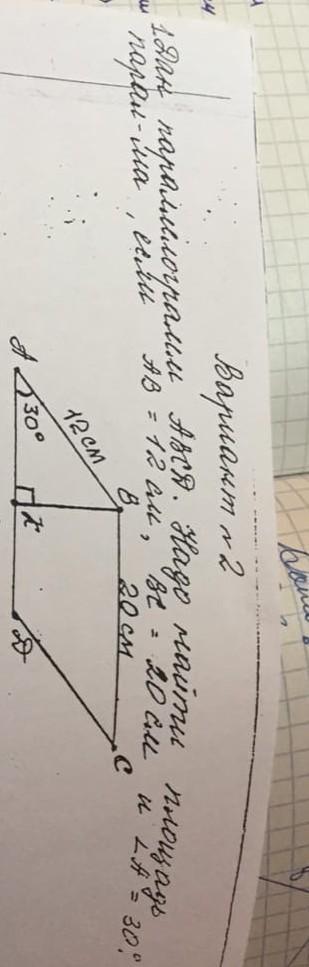 Вариант №2
1. Дан параллелограмм ABCD. Надо найти площадь
парал-ма, если AB = 12 см, BC = 20 см и ∠A = 30°.
B
20 см
C
12 см
30°
A
D